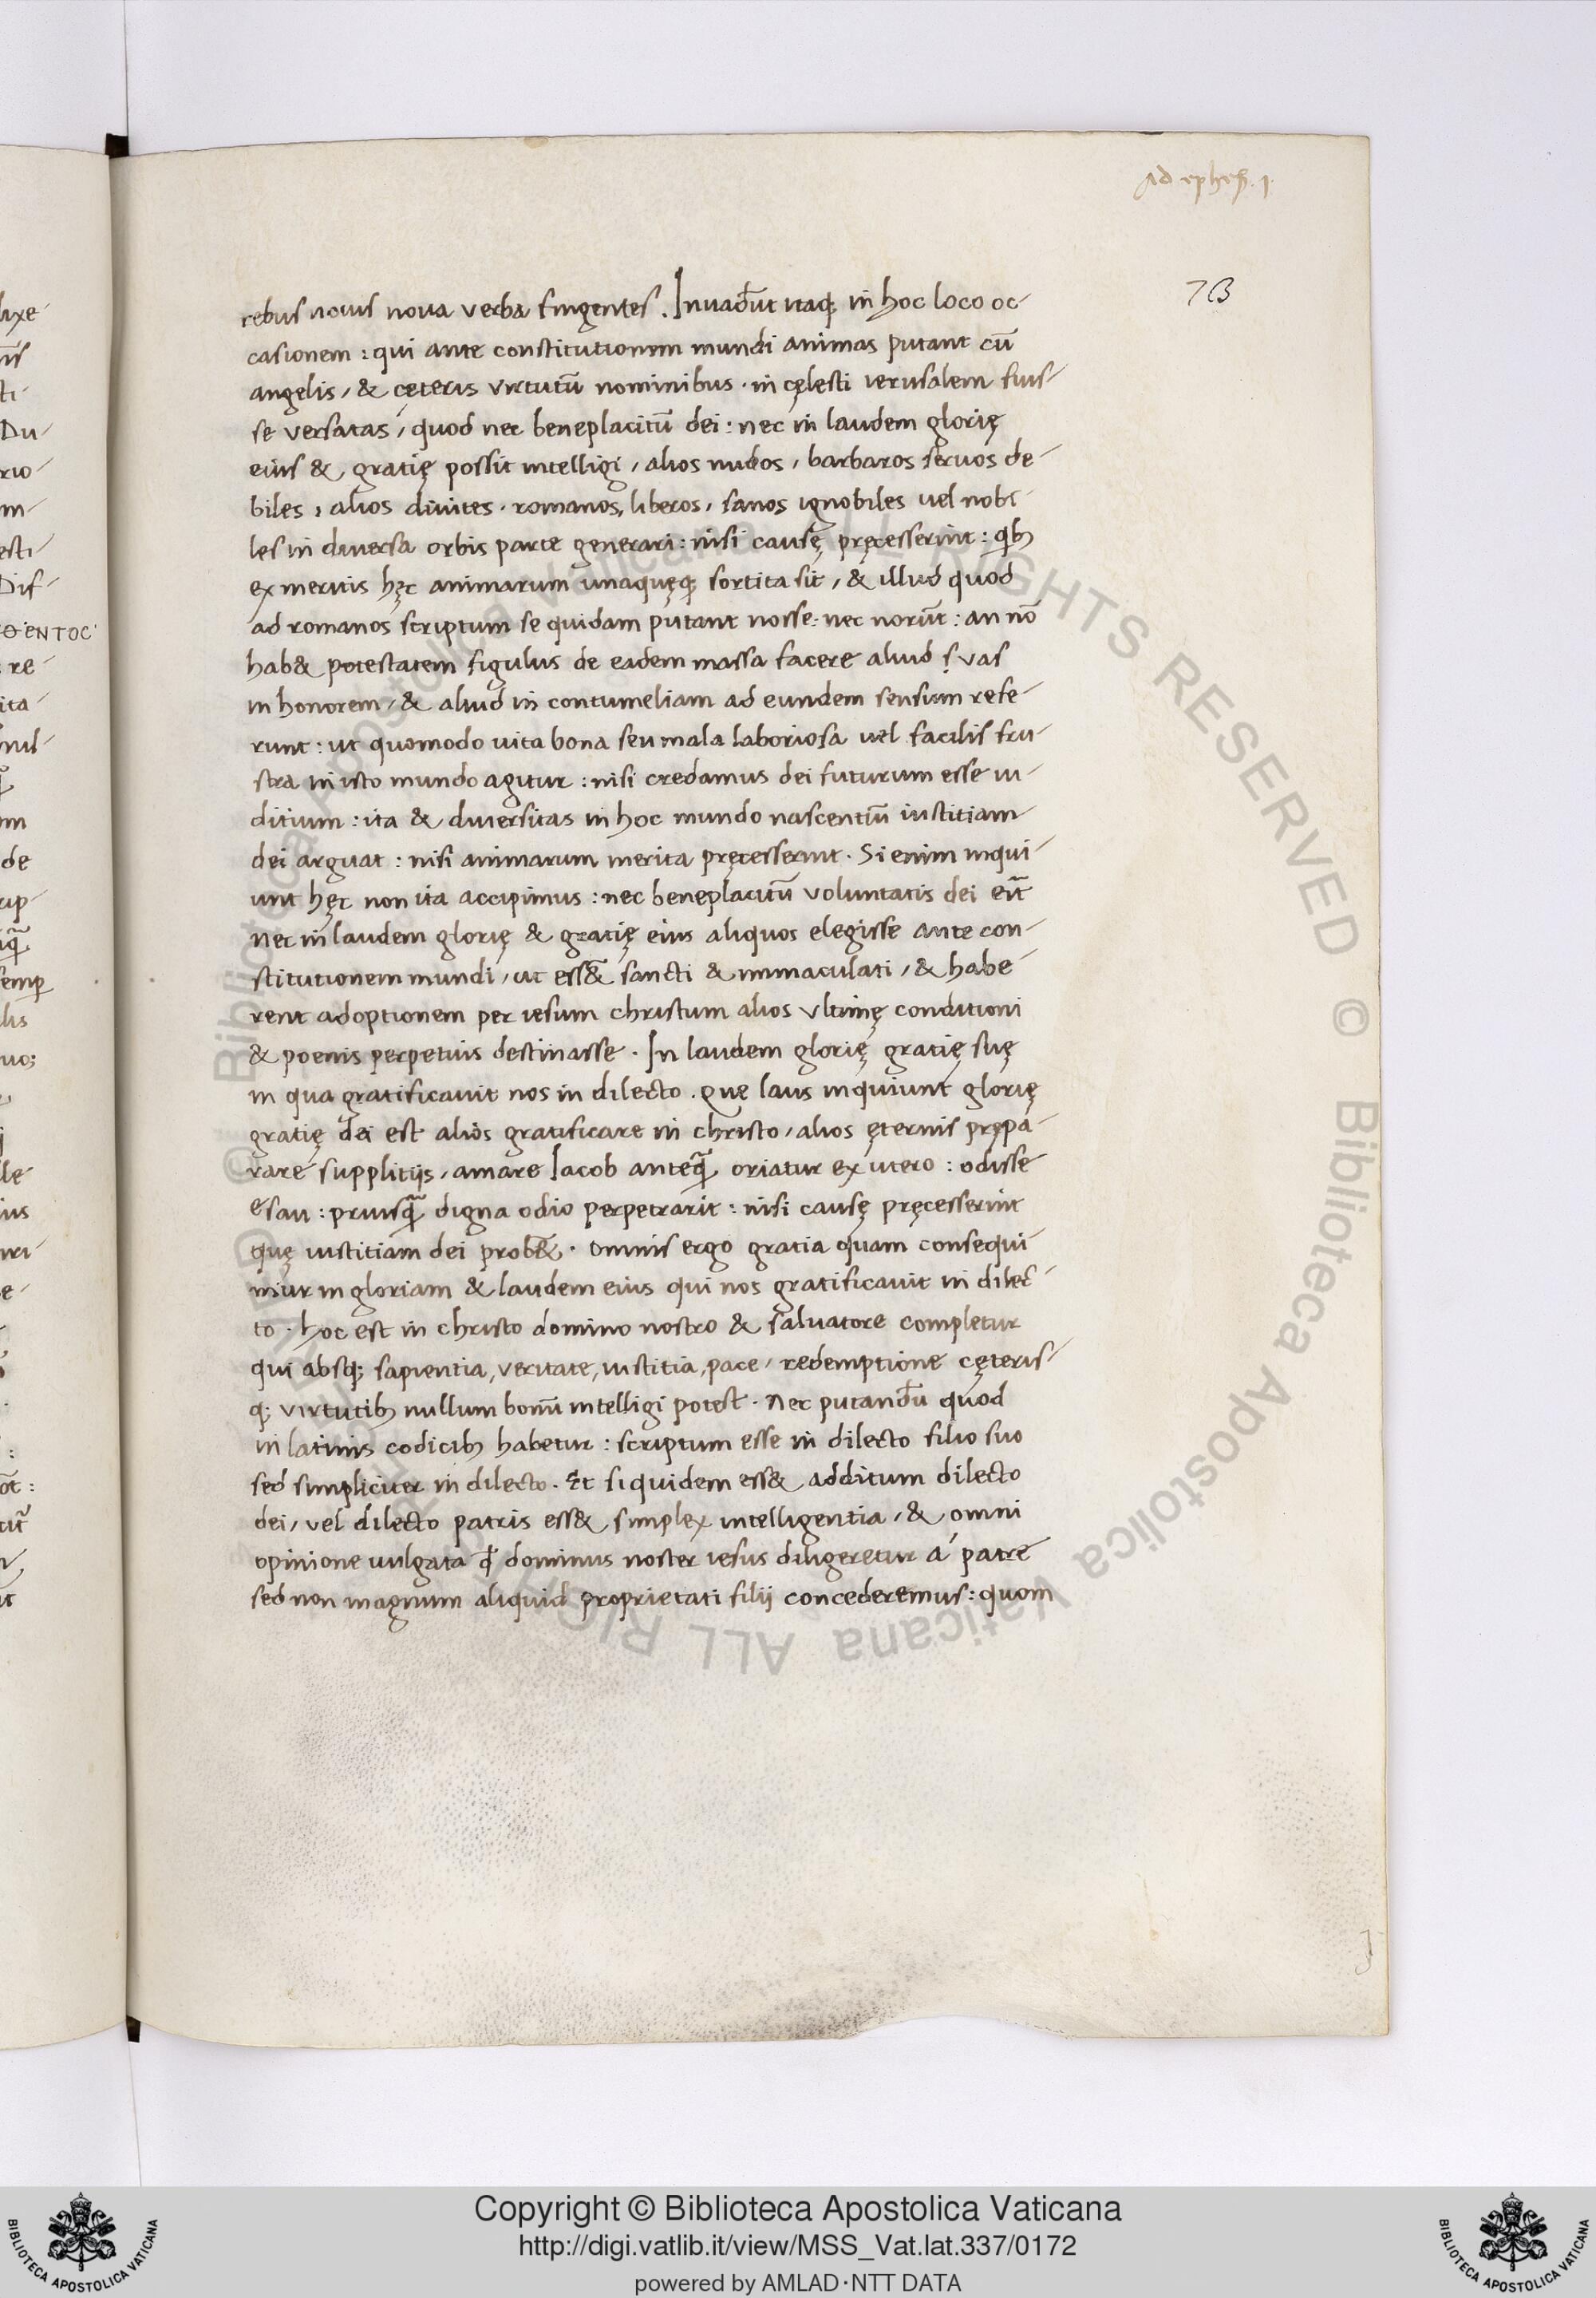 Ad ephes̄. 1.
73
rebus nouis noua verba fingentes. Inuad̄ut itaq; in hoc loco oc-
casionem : qui ante constitutionem mundi animas putant cū
angelis, & cęteris virtutū nominibus. in cęlesti ierusalem fuis-
se versatas, quod nec beneplacitū dei : nec in laudem glorię
eius & gratię possit intelligi, alios nudos, barbaros seruos de-
biles, alios diuites. romanos, liberos, sanos ignobiles vel nobi-
les in diuersa orbis parte generari : nisi causę pręcesserint : qib;
ex meritis hęc animarum unaquęq; sortita sit, & illud quod
ad romanos scriptum se quidam putant nosse : nec norūt : an nō
hab& potestatem figulus de eadem massa facere aliud ṣ vas
in honorem, & aliud in contumeliam ad eundem sensum refe-
runt : ut quomodo uita bona seu mala laboriosa vel facilis fru-
stra in isto mundo agitur : nisi credamus dei futurum esse iu-
ditium : ita & diuersitas in hoc mundo nascentiū iustitiam
dei arguat : nisi animarum merita pręcesserint. Si enim inqui-
unt hęc non ita accipimus : nec beneplacitū voluntatis dei erit̄
nec in laudem glorię & gratię eius aliquos elegisse ante con-
stitutionem mundi, ut ess&̄ sancti & immaculati, & habe-
rent adoptionem per iesum christum alios vltimę conditioni
& poenis perpetuis destinasse. In laudem glorię gratię suę
in qua gratificauit nos in dilecto. Que laus inquiunt glorię
gratię dei est alios gratificare in christo, alios ęternis prępa-
rare supplitijs, amare Iacob anteq̄ oriatur ex utero : odisse
esau : priusq̄ digna odio perpetrarit : nisi causę pręcesserint
quę iustitiam dei prob&̄. omnis ergo gratia quam consequi-
mur in gloriam & laudem eius qui nos gratificauit in dilec-
to. hoc est in christo domino nostro & saluatore completur
qui absq; sapientia, veritate, iustitia, pace, redemptione cęteris-
q; virtutib; nullum bonū intelligi potest. nec putand̄u quod
in latinis codicib; habetur : scriptum esse in dilecto filio suo
sed simpliciter in dilecto. Et si quidem ess& additum dilecto
dei, vel dilecto patris ess& simplex intelligentia, & omni
opinione uulgata qd dominus noster iesus diligeretur á patre
sed non magnum aliquid proprietati filij concederemus : quom
Copyright © Biblioteca Apostolica Vaticana
http://digi.vatlib.it/view/MSS_Vat.lat.337/0172
powered by AMLAD·NTT DATA